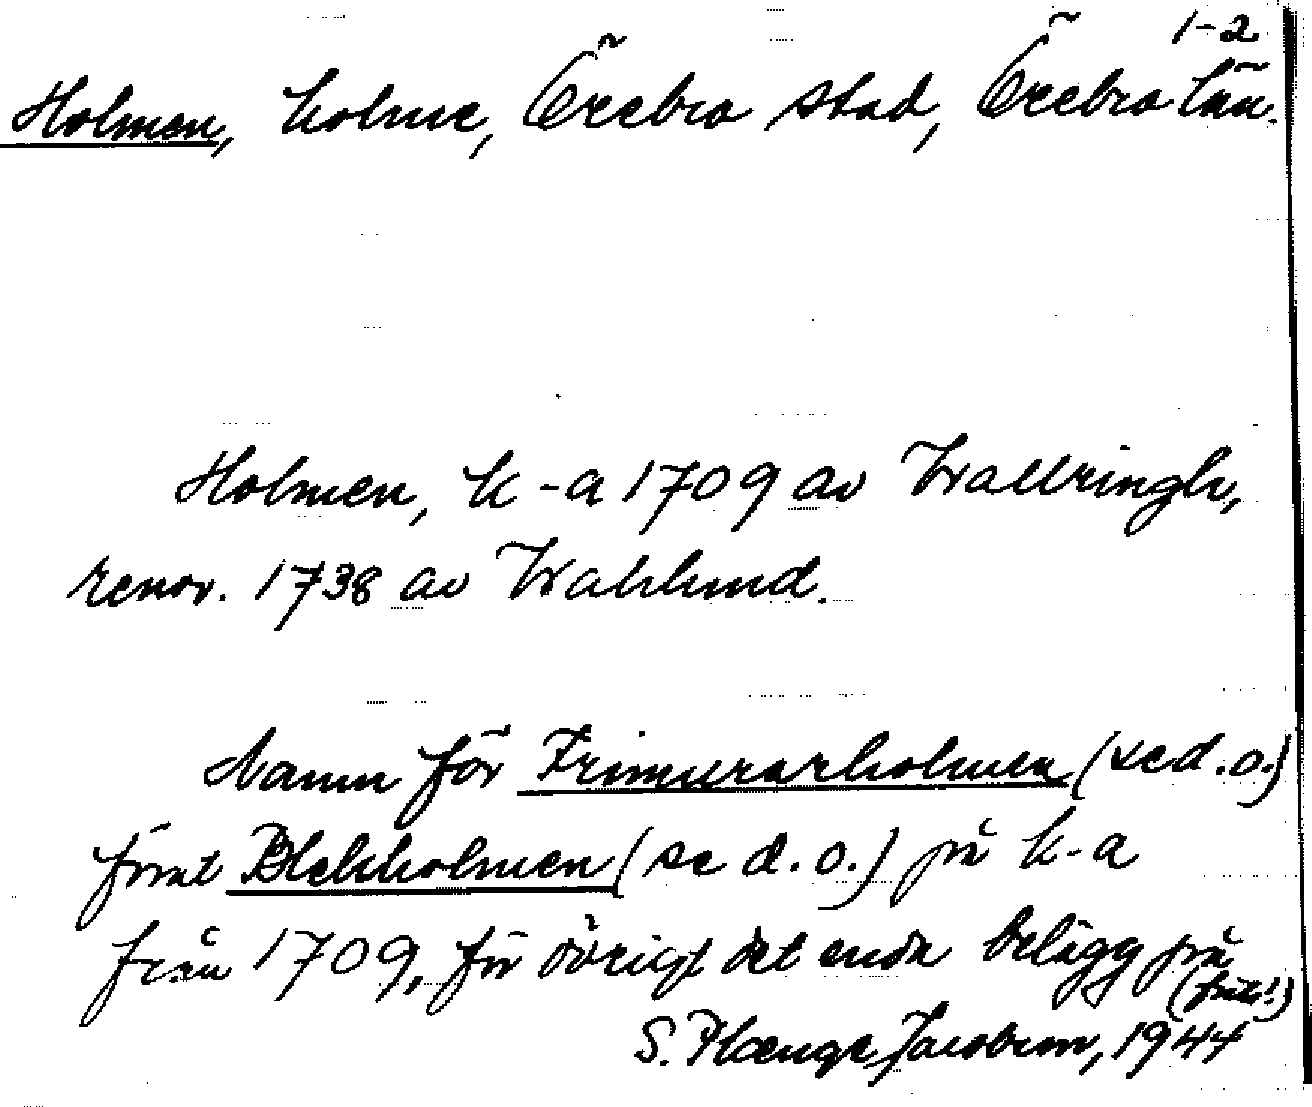 1-2
Holmen, holme, Örebro stad, Örebro län.
Holmen, k-a 1709 av Wallringh,
renov. 1738 av Wahlund.
Namn för Frimurarholmen (se d.o.)
förut Blekholmen (se d.o.) på k-a
från 1709, för övrigt det enda belägg på
(forts!)
S. Plænge Jacobson, 1944